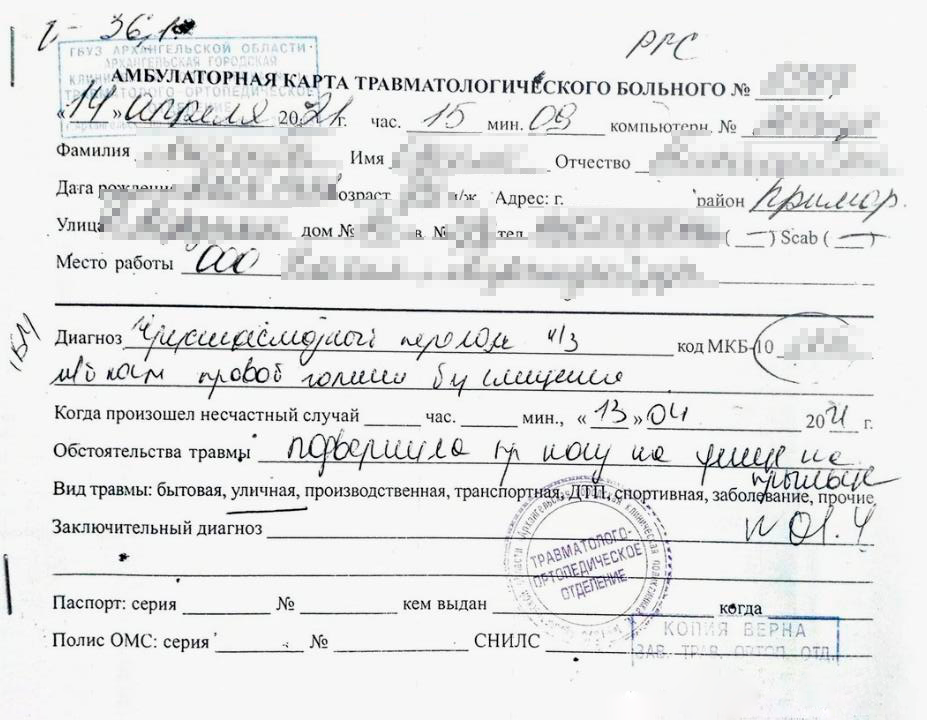 t - 36,1
РГС
ГБУЗ АРХАНГЕЛЬСКОЙ ОБЛАСТИ
АРХАНГЕЛЬСКАЯ ГОРОДСКАЯ
АМБУЛАТОРНАЯ КАРТА ТРАВМАТОЛОГИЧЕСКОГО БОЛЬНОГО №
«14» апреля 2021г. час. 15 мин. 09 компьютерн. №
Фамилия Имя Отчество
Дата рождения возраст м/ж Адрес: г. район Примор.
Улица дом № в. № тел. ( ) Scab ( )
Место работы ООО
Диагноз перелом н/з код МКБ-10
правой голени б/смещения
Когда произошел несчастный случай час. мин., «13» 04 2021 г.
Обстоятельства травмы подвернула пр ногу на улице на
крыльце
Вид травмы: бытовая, уличная, производственная, транспортная, ДТП, спортивная, заболевание, прочие
Заключительный диагноз
ТРАВМАТОЛОГО-
ОРТОПЕДИЧЕСКОЕ
ОТДЕЛЕНИЕ
Паспорт: серия № кем выдан когда
Полис ОМС: серия № СНИЛС
КОПИЯ ВЕРНА
ЗАВ. ТРАВ. ОРТОП. ОТД.